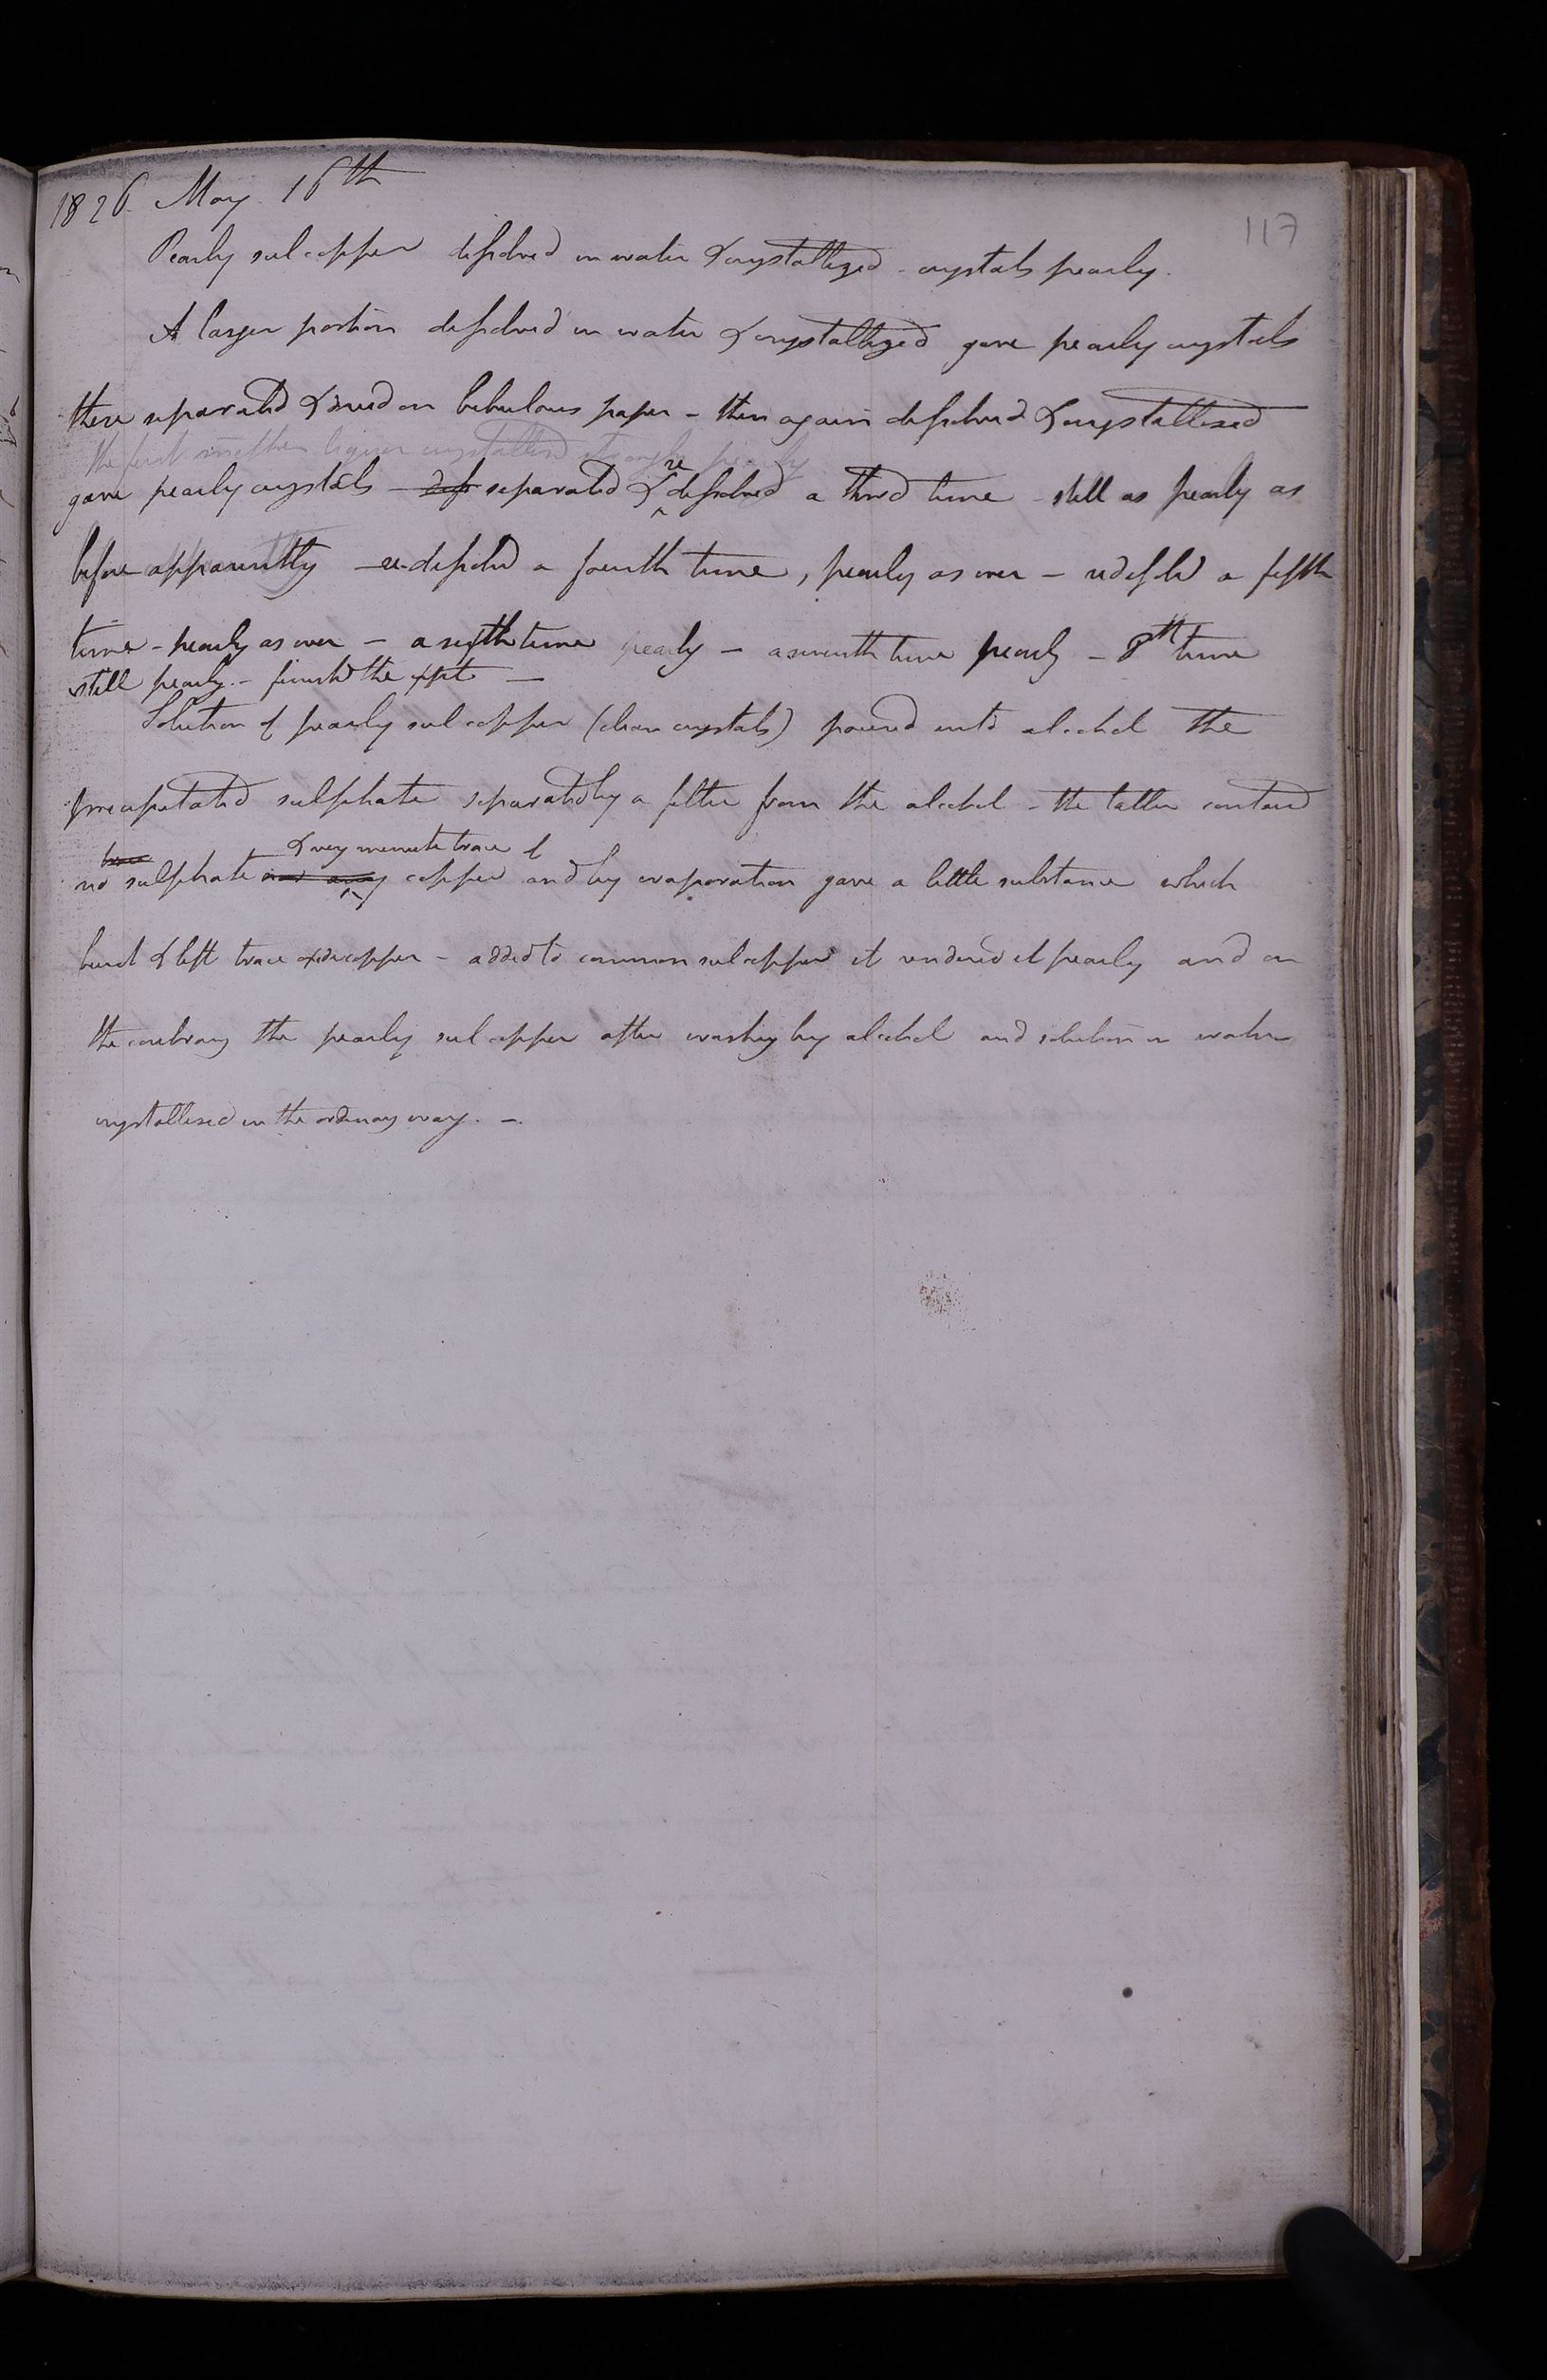 1826. May. 16th
117
Pearly sul copper dissolved in water & crystallized - crystals pearly.
A larger portion dissolved in water & crystallized gave pearly crystals
these separated & dried on bibulous paper - then again dissolved & crystallised
the first mother liquor crystallised strongly pearly
gave pearly crystals - diss separated & re dissolved a third time - still as pearly as
before apparently - re-dissolvd a fourth time, pearly as ever - redissolvd a fifth
time - pearly as ever - a sixth time pearly - a seventh time pearly - 8th time
still pearly. - finishd the expt -
Solution of pearly sul copper (clean crystals) poured into alcohol the
precipitated sulphate separated by a filter from the alcohol - the latter contained
trace & very minute trace of
no sulphate nor any copper and by evaporation gave a little substance which
burnt & left trace oxide copper - added to common sul copper it rendered it pearly and on
the contrary the pearly sul copper after washing by alcohol and solution in water
crystallised in the ordinary way. -